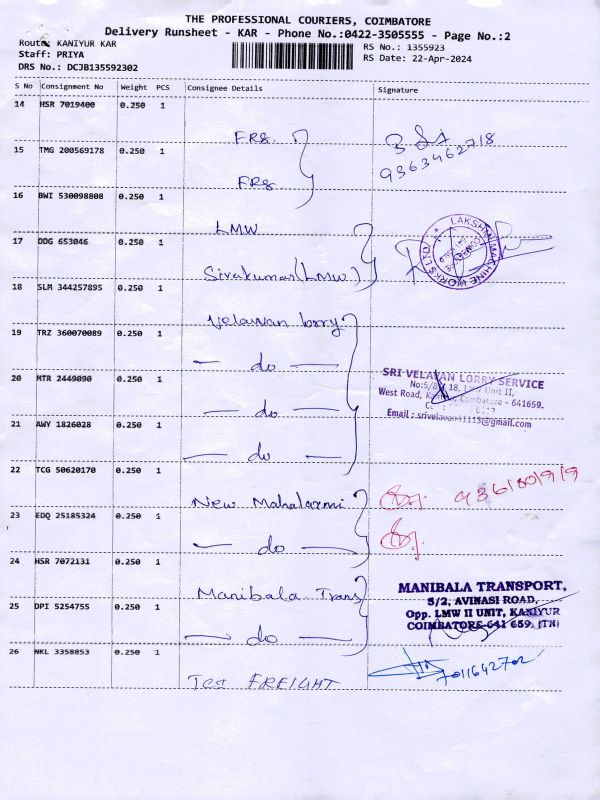 THE PROFESSIONAL COURIERS, COIMBATORE
Delivery Runsheet - KAR - Phone No.:0422-3505555 - Page No.:2
Route: KANIYUR KAR
RS No.: 1355923
Staff: PRIYA
RS Date: 22-Apr-2024
DRS No.: DCJB135592302
S No Consignment No Weight PCS Consignee Details Signature
14 HSR 7019400 0.250 1
FRS
9363462718
15 TMG 200569178 0.250 1
FRS
16 BWI 530098808 0.250 1
LMW
LAKSHMI MACHINE WORKS LTD
17 DDG 653046 0.250 1
Sivakumar (LMW)
18 SLM 344257895 0.250 1
Velavan lorry
19 TRZ 360070089 0.250 1
— do —
20 MTR 2449090 0.250 1
SRI VELAVAN LORRY SERVICE
No:5/8 18, LMW Unit II,
West Road, Coimbatore - 641659.
Email : srivelavan11113@gmail.com
— do —
21 AWY 1826028 0.250 1
— do —
22 TCG 50620170 0.250 1
New Mahalaxmi
23 EDQ 25185324 0.250 1
— do —
24 HSR 7072131 0.250 1
Manibala Trans
MANIBALA TRANSPORT,
5/2, AVINASI ROAD,
Opp. LMW II UNIT, KANIYUR
COIMBATORE-641 659. (TN)
25 DPI 5254755 0.250 1
— do —
26 NKL 3358853 0.250 1
7011642702
Tct FREIGHT